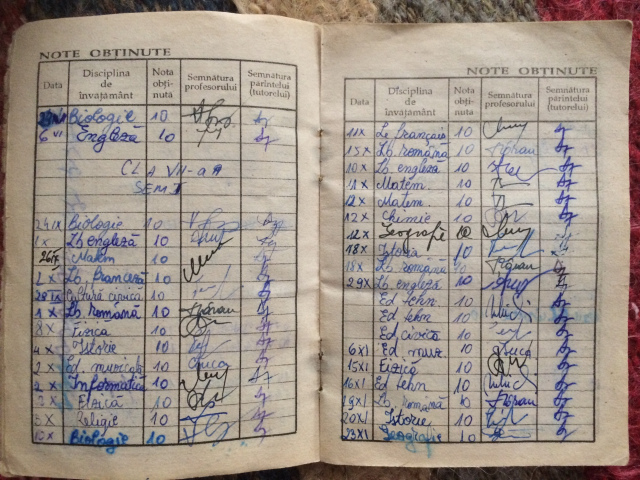 NOTE OBȚINUTE
Data Disciplina de învățământ Nota obți-nută Semnătura profesorului Semnătura părintelui (tutorelui)
Biologie 10
6 VI Engleză 10
CLA VII-a A
SEM I
24 IX Biologie 10
1 X Lb engleză 10
26 IX Matem 10
2 X Lb. franceză 10
28 IX Cultură civică 10
1 X Lb. română 10
8 X Fizică 10
4 X Istorie 10
2 X Ed. muzicală 10
2 X Informatică 10
3 X Fizică 10
5 X Religie 10
10 X Biologie 10
NOTE OBȚINUTE
Data Disciplina de învățământ Nota obți-nută Semnătura profesorului Semnătura părintelui (tutorelui)
11 X Lb franceză 10
15 X Lb. română 10
10 X Lb engleză 10
11 X Matem 10
12 X Matem 10
12 X Chimie 10
12 X Geografie 10
18 X Istorie 10
18 X Lb. română 10
29 X Lb. engleză 10
Ed tehn. 10
Ed tehn 10
Ed civică 10
6 XI Ed. muz. 10
15 XI Fizică 10
16 XI Ed tehn 10
19 XI Lb. română 10
20 XI Istorie 10
23 XI Geografie 10